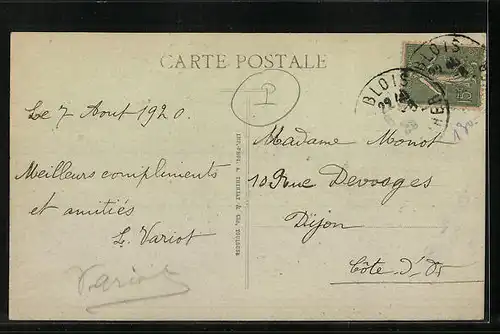 CARTE POSTALE
BLOIS
BLOIS
CHER
Le 7 Aout 1920.
Meilleurs compliments
et amitiés
L. Variot
Variot
Madame Monot
10 Rue Devosges
Dijon
Côte-d'Or